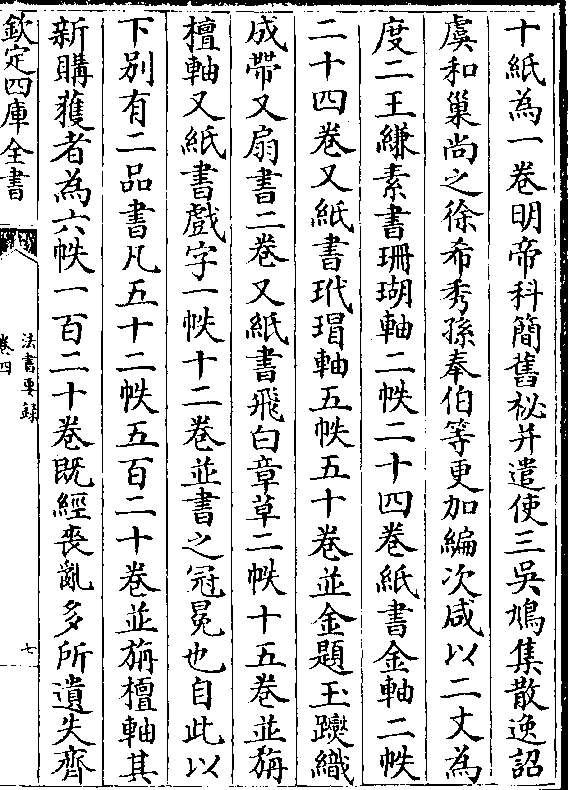 十紙為一卷明帝科簡舊祕并遣使三吳鳩集散逸詔
虞和巢尚之徐希秀孫奉伯等更加編次咸以二丈為
度二王縑素書珊瑚軸二帙二十四卷紙書金軸二帙
二十四卷又紙書玳瑁軸五帙五十卷並金題玉躞織
成帶又扇書二卷又紙書飛白章草二帙十五卷並旃
檀軸又紙書戲字一帙十二卷並書之冠冕也自此以
下別有二品書凡五十二帙五百二十卷並旃檀軸其
新購獲者為六帙一百二十卷既經喪亂多所遺失齊
欽定四庫全書
法書要錄
卷四
七